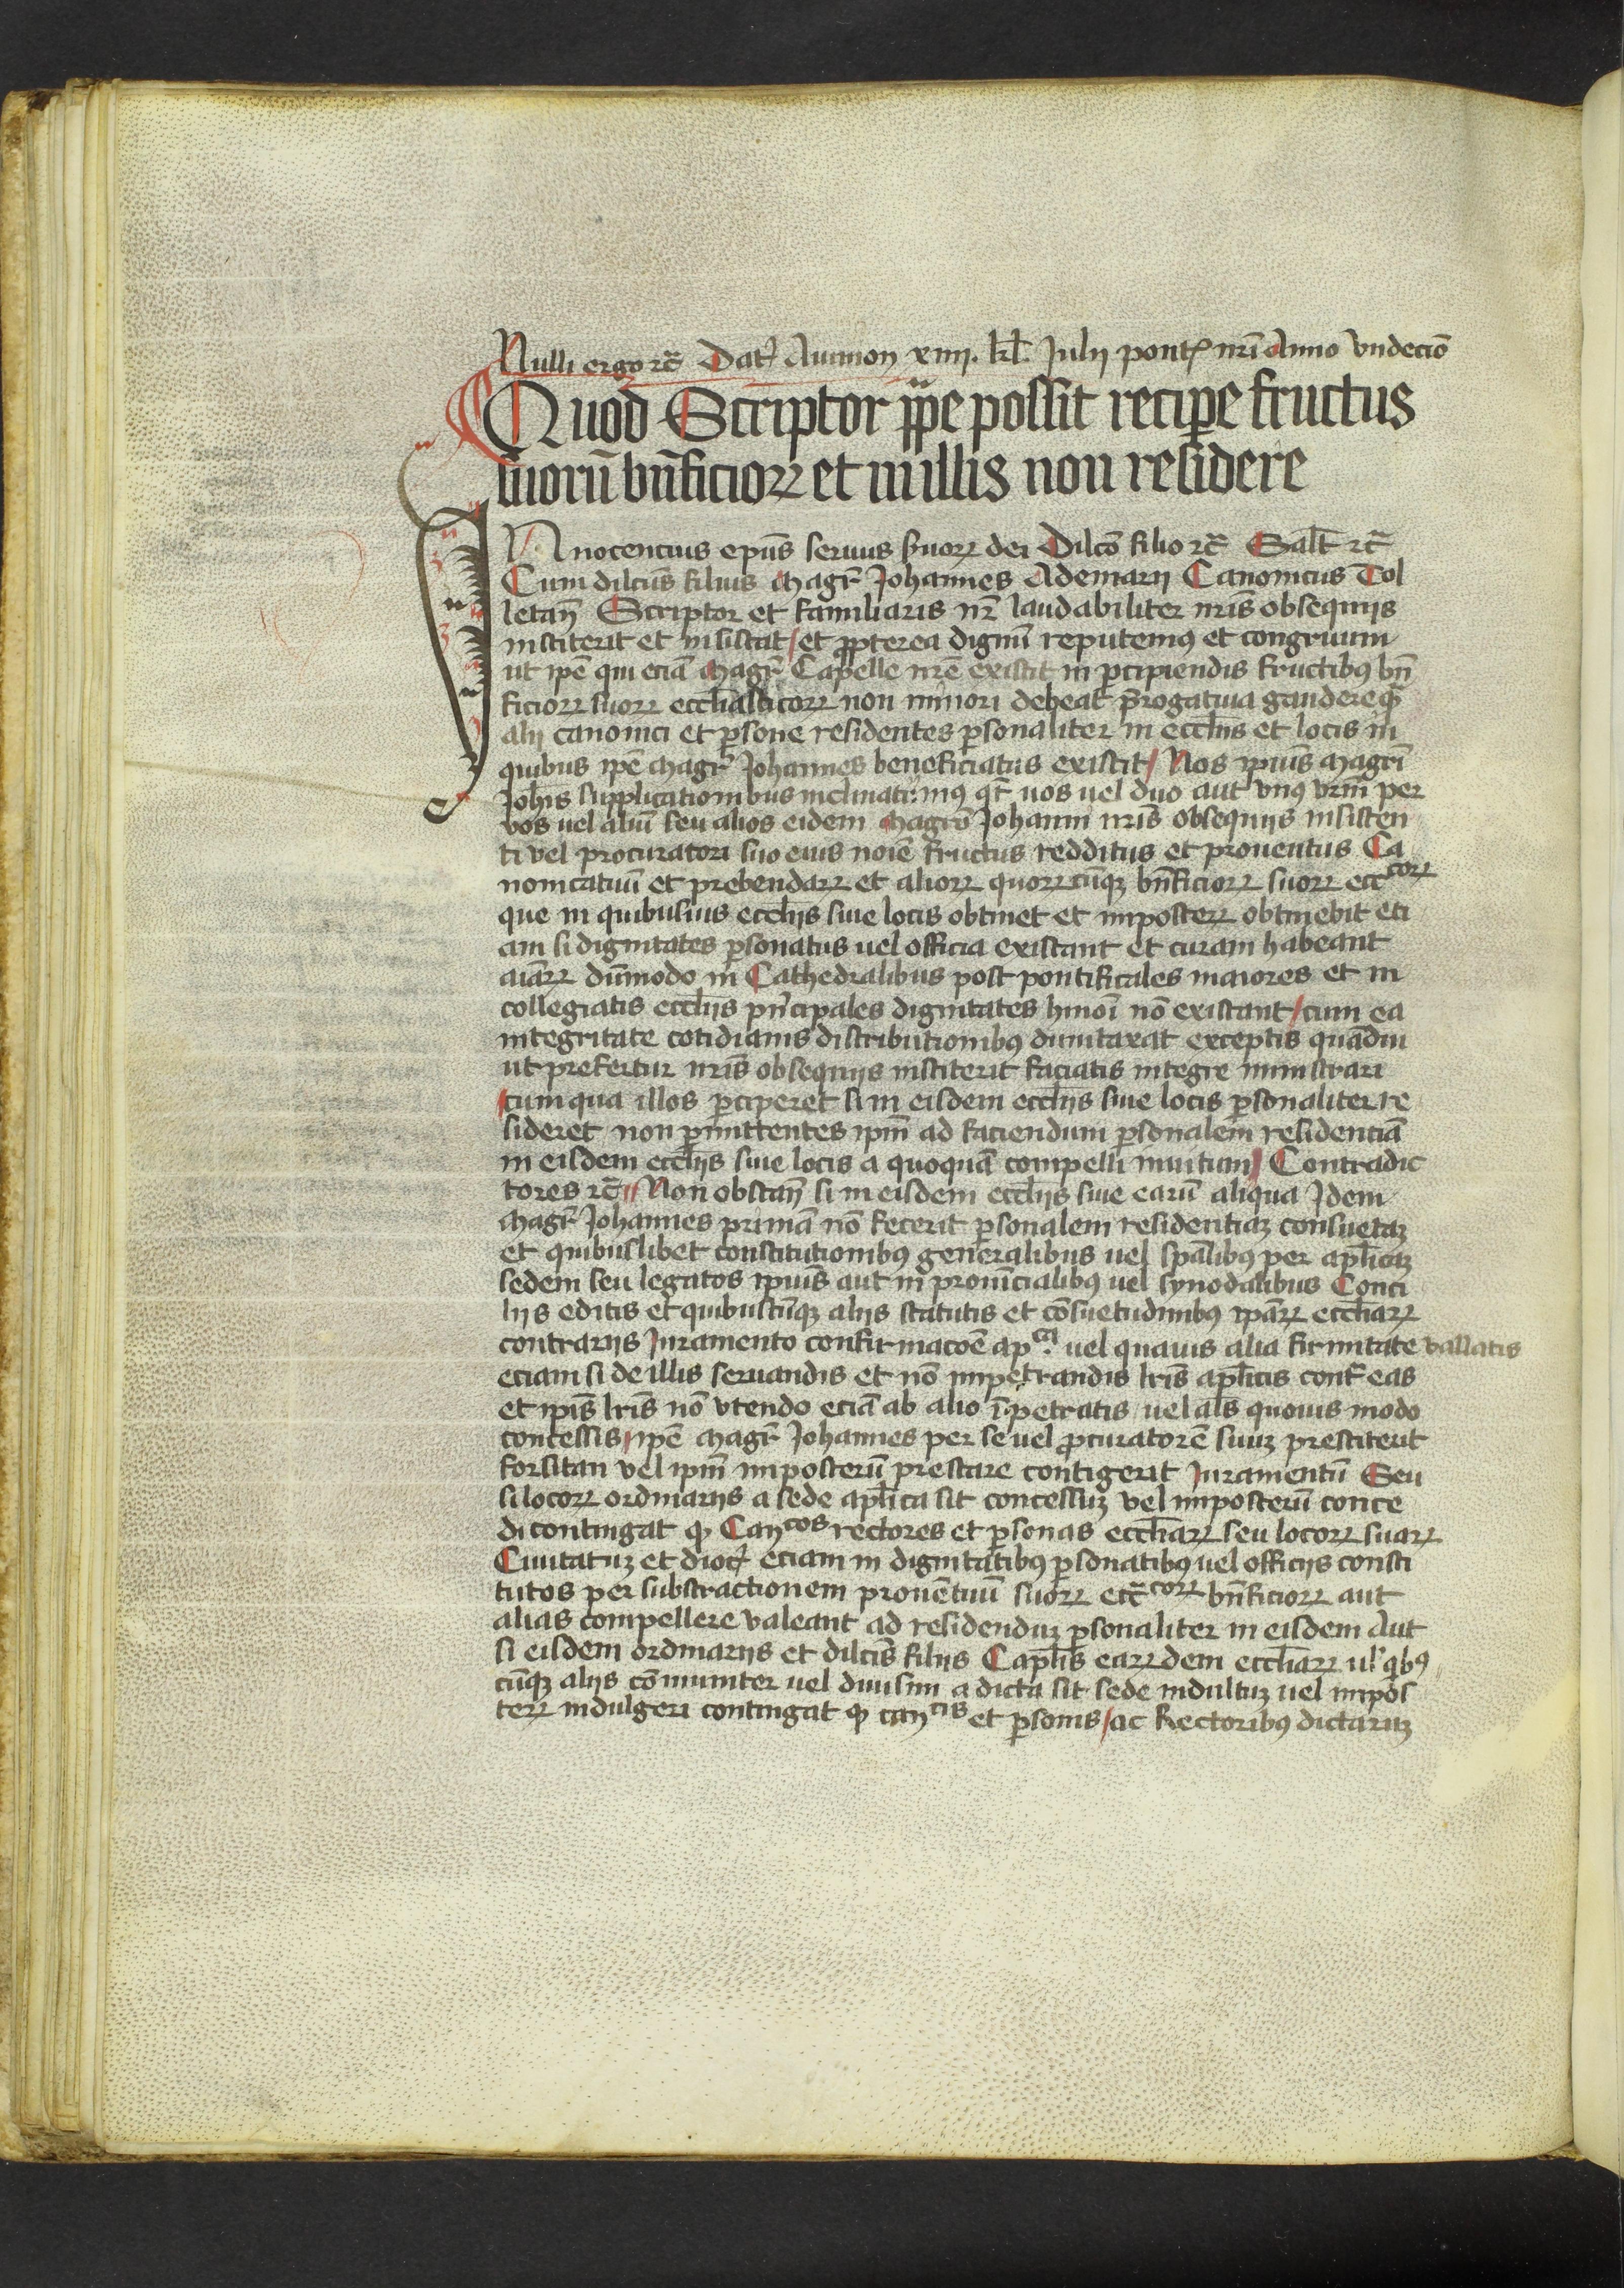 Nulli ergo ⁊c̃ Dat̃ Auinion xiiij. kl̃. Julij pont̃ nr̃i Anno vndecĩo
Quod Scriptor ꝓpe possit recipe fructus
suorũ bñficioꝝ et in illis non residere
INnocencius ep̃us seruus suoꝝ dei Dilc̃o filio ⁊c̃ Salt̃ ⁊c̃
Cum dilc̃us filius Magr̃ Johannes Ademarij Canonicus Tol
letañ Scriptor et familiaris nr̃ laudabiliter nr̃is obsequijs
institerit et insistat / et ꝓpterea dignũ reputemꝰ et congruum
ut ip̃e qui eciã Magr̃ Capelle nr̃e existit in ꝑcipiendis fructibꝰ bñ
ficioꝝ suoꝝ eccl̃iasticoꝝ non minori debeat p̃rogatiua gaudere q̃
alij canonici et ꝑsone residentes ꝑsonaliter in eccl̃ijs et locis in
quibus ip̃e Magr̃ Johannes beneficiatus existit / Nos ip̃ius Magr̃i
Joh̃is supplicationibus inclinati mꝰ qr̃ uos uel duo aut vnꝰ vr̃m per
vos uel aliũ seu alios eidem Magr̃o Johanni nr̃is obsequijs insisten
ti vel procuratori suo eius noĩe fructus redditus et prouentus Ca
nonicatuũ et prebendaꝝ et alioꝝ quoꝝcũqꝫ bñficioꝝ suoꝝ ecc̃coꝝ
que in quibusuis eccl̃ijs siue locis obtinet et imposteꝝ obtinebit eci
am si dignitates ꝑsonatus uel officia existant et curam habeant
aĩaꝝ dũmodo in Cathedralibus post pontificales maiores et in
collegiatis eccl̃ijs pñcipales dignitates hm̃oi nõ existant / cum ea
integritate cotidianis distributionibꝰ dumtaxat exceptis quãdiu
ut prefertur nr̃is obsequijs institerit faciatis integre ministrari
/ cum qua illos ꝑciperet si in eisdem eccl̃ijs siue locis ꝑsonaliter re
sideret non ꝑmittentes ip̃m ad faciendum ꝑsonalem residenciã
in eisdem eccl̃ijs siue locis a quoquã compelli inuitum / Contradic
tores ⁊c̃ // Non obstañ si in eisdem eccl̃ijs siue earũ aliqua Idem
Magr̃ Johannes primã nõ fecerit ꝑsonalem residentiaꝫ consuetaꝫ
et quibuslibet constitutionibꝰ generalibus uel sp̃alibꝰ per ap̃licaꝫ
sedem seu legatos ip̃ius aut in prouincialibꝰ uel synodalibus Conci
lijs editis et quibuscũqꝫ alijs statutis et cõsuetudinibꝰ ip̃aꝝ eccl̃iaꝝ
contrarijs Juramento confirmacõe ap.ca uel quauis alia firmitate vallatis
eciam si de illis seruandis et nõ impetrandis lr̃is ap̃licis cont̃ eas
et ip̃is lr̃is nõ vtendo eciã ab alio ĩpetratis / uel als̃ quouis modo
concessis / ip̃e Magr̃ Johannes per se uel ꝓcuratorẽ suuꝫ prestiterit
forsitan vel ip̃m imposterũ prestare contigerit Juramentũ Seu
si locoꝝ ordinarijs a sede ap̃lica sit concessuꝫ vel imposterũ conce
di contingat ꝙ Cancos rectores et ꝑsonas eccl̃iaꝝ seu locoꝝ suaꝝ
Ciuitatuꝫ et dioc̃ eciam in dignitatibꝰ ꝑsonatibꝰ uel officijs consti
tutos per substractionem prouẽtuũ suoꝝ ecc̃coꝝ bñficioꝝ aut
alias compellere valeant ad residenduꝫ ꝑsonaliter in eisdem Aut
si eisdem ordinarijs et dilc̃is filijs Capl̃is eaꝝdem eccl̃iaꝝ ul̃ qbꝰ
cũqꝫ alijs cõmuniter uel diuisim a dicta sit sede indultuꝫ uel impos
teꝝ indulgeri contingat ꝙ cancis et ꝑsonis / ac Rectoribꝰ dictaruꝫ